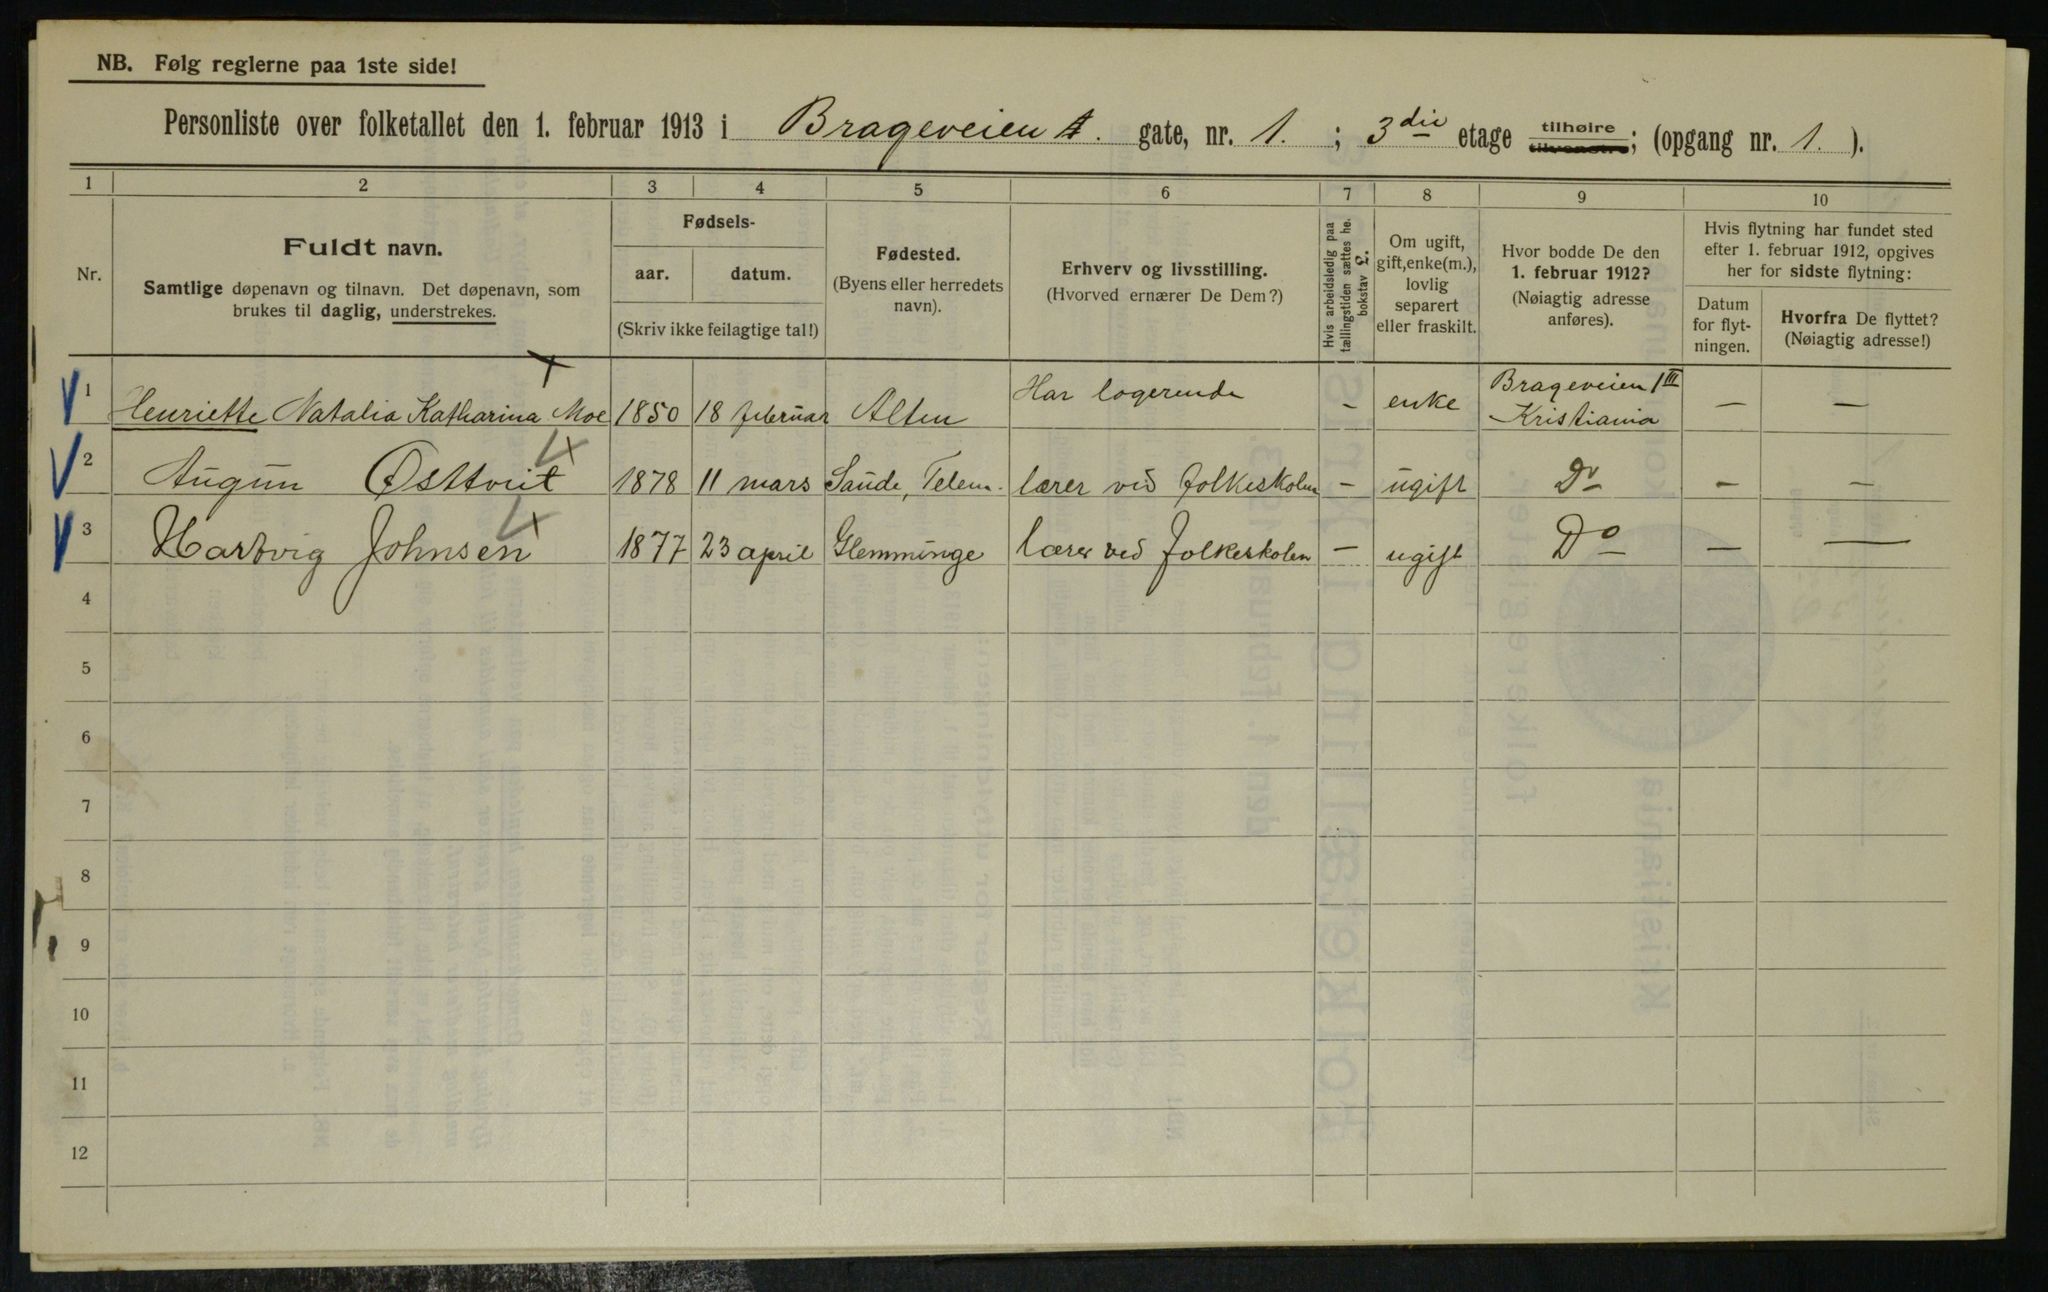 NB. Følg reglerne paa 1ste side!
Personliste over folketallet den 1. februar 1913 i Brageveien gate, nr. 1. ; 3die etage tilhøire tilvenstre; (opgang nr. 1. ).
1 2 3 4 5 6 7 8 9 10
Nr.
Fuldt navn.
Samtlige døpenavn og tilnavn. Det døpenavn, som
brukes til daglig, understrekes.
Fødsels-
aar. datum.
(Skriv ikke feilagtige tal!)
Fødested.
(Byens eller herredets
navn).
Erhverv og livsstilling.
(Hvorved ernærer De Dem?)
Hvis arbeidsledig paa
tællingstiden sættes her
bokstav l.
Om ugift,
gift, enke(m.),
lovlig
separert
eller fraskilt.
Hvor bodde De den
1. februar 1912?
(Nøiagtig adresse
anføres).
Hvis flytning har fundet sted
efter 1. februar 1912, opgives
her for sidste flytning:
Datum
for flyt-
ningen.
Hvorfra De flyttet?
(Nøiagtig adresse!)
1 Henriette Natalia Katharina Moe 1850 18 februar Alten Har logerende - enke Brageveien 1 III Kristiania - -
2 Augun Østtveit 1878 11 mars Saude, Telem. lærer ved folkeskolen - ugift Do - -
3 Hartvig Johnsen 1877 23 april Glemminge lærer ved folkeskolen - ugift Do - -
4
5
6
7
8
9
10
11
12